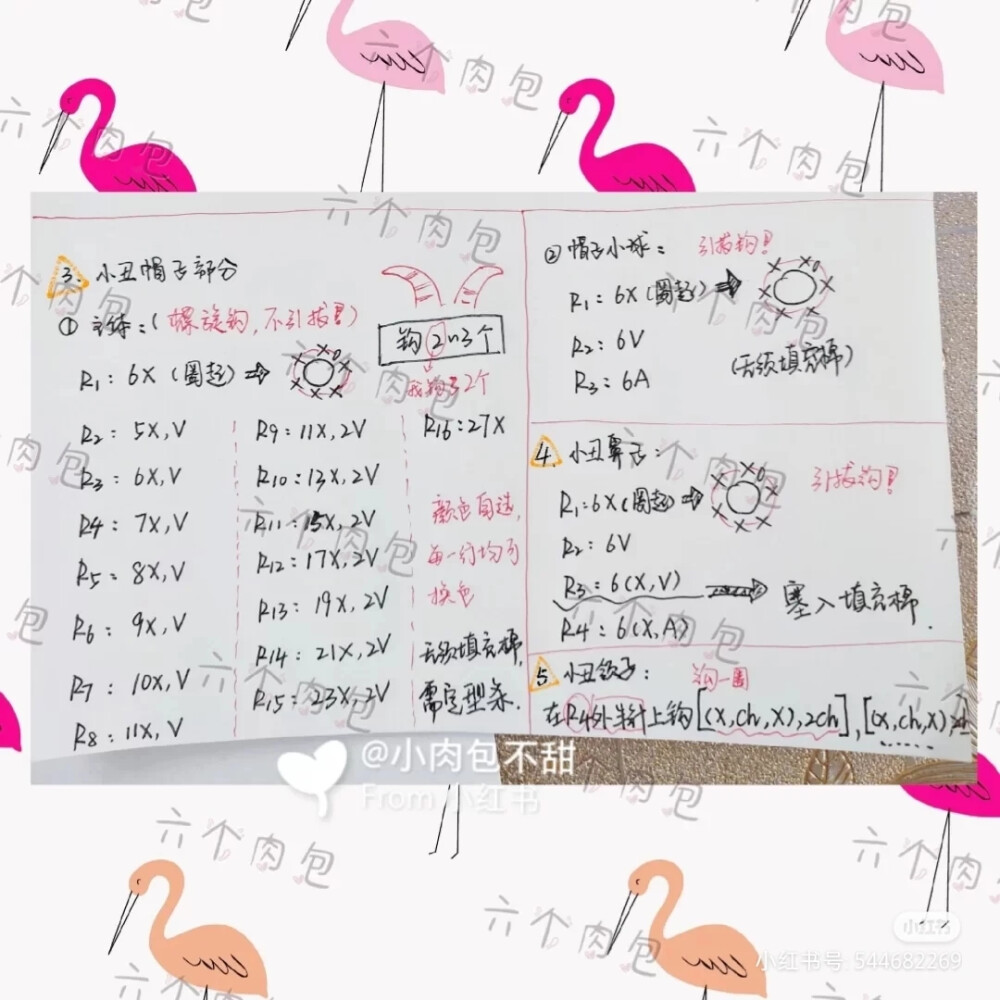 3. 小丑帽子部分
① 主体:(螺旋钩,不引拔!!)
钩2~3个
我钩了2个
R1: 6X (圈起)
R2: 5X, V
R3: 6X, V
R4: 7X, V
R5: 8X, V
R6: 9X, V
R7: 10X, V
R8: 11X, V
R9: 11X, 2V
R10: 13X, 2V
R11: 15X, 2V
R12: 17X, 2V
R13: 19X, 2V
R14: 21X, 2V
R15: 23X, 2V
R16: 27X
颜色自选,
每一行均可
换色
无须填充棉,
需定型条.
② 帽子小球: 引拔钩!!
R1: 6X (圈起)
R2: 6V
R3: 6A
(无须填充棉)
4. 小丑鼻子:
引拔钩!!
R1: 6X (圈起)
R2: 6V
R3: 6(X, V) 塞入填充棉.
R4: 6(X, A)
5 小丑领子: 钩一圈
在R4外半针上钩[(X, ch, X), 2ch], [(X, ch, X)
@小肉包不甜
From 小红书
六个肉包
六个肉包
六个肉包
六个肉包
六个肉包
六个肉包
六个肉包
六个肉包
六个肉包
小红书
小红书号: 544682269